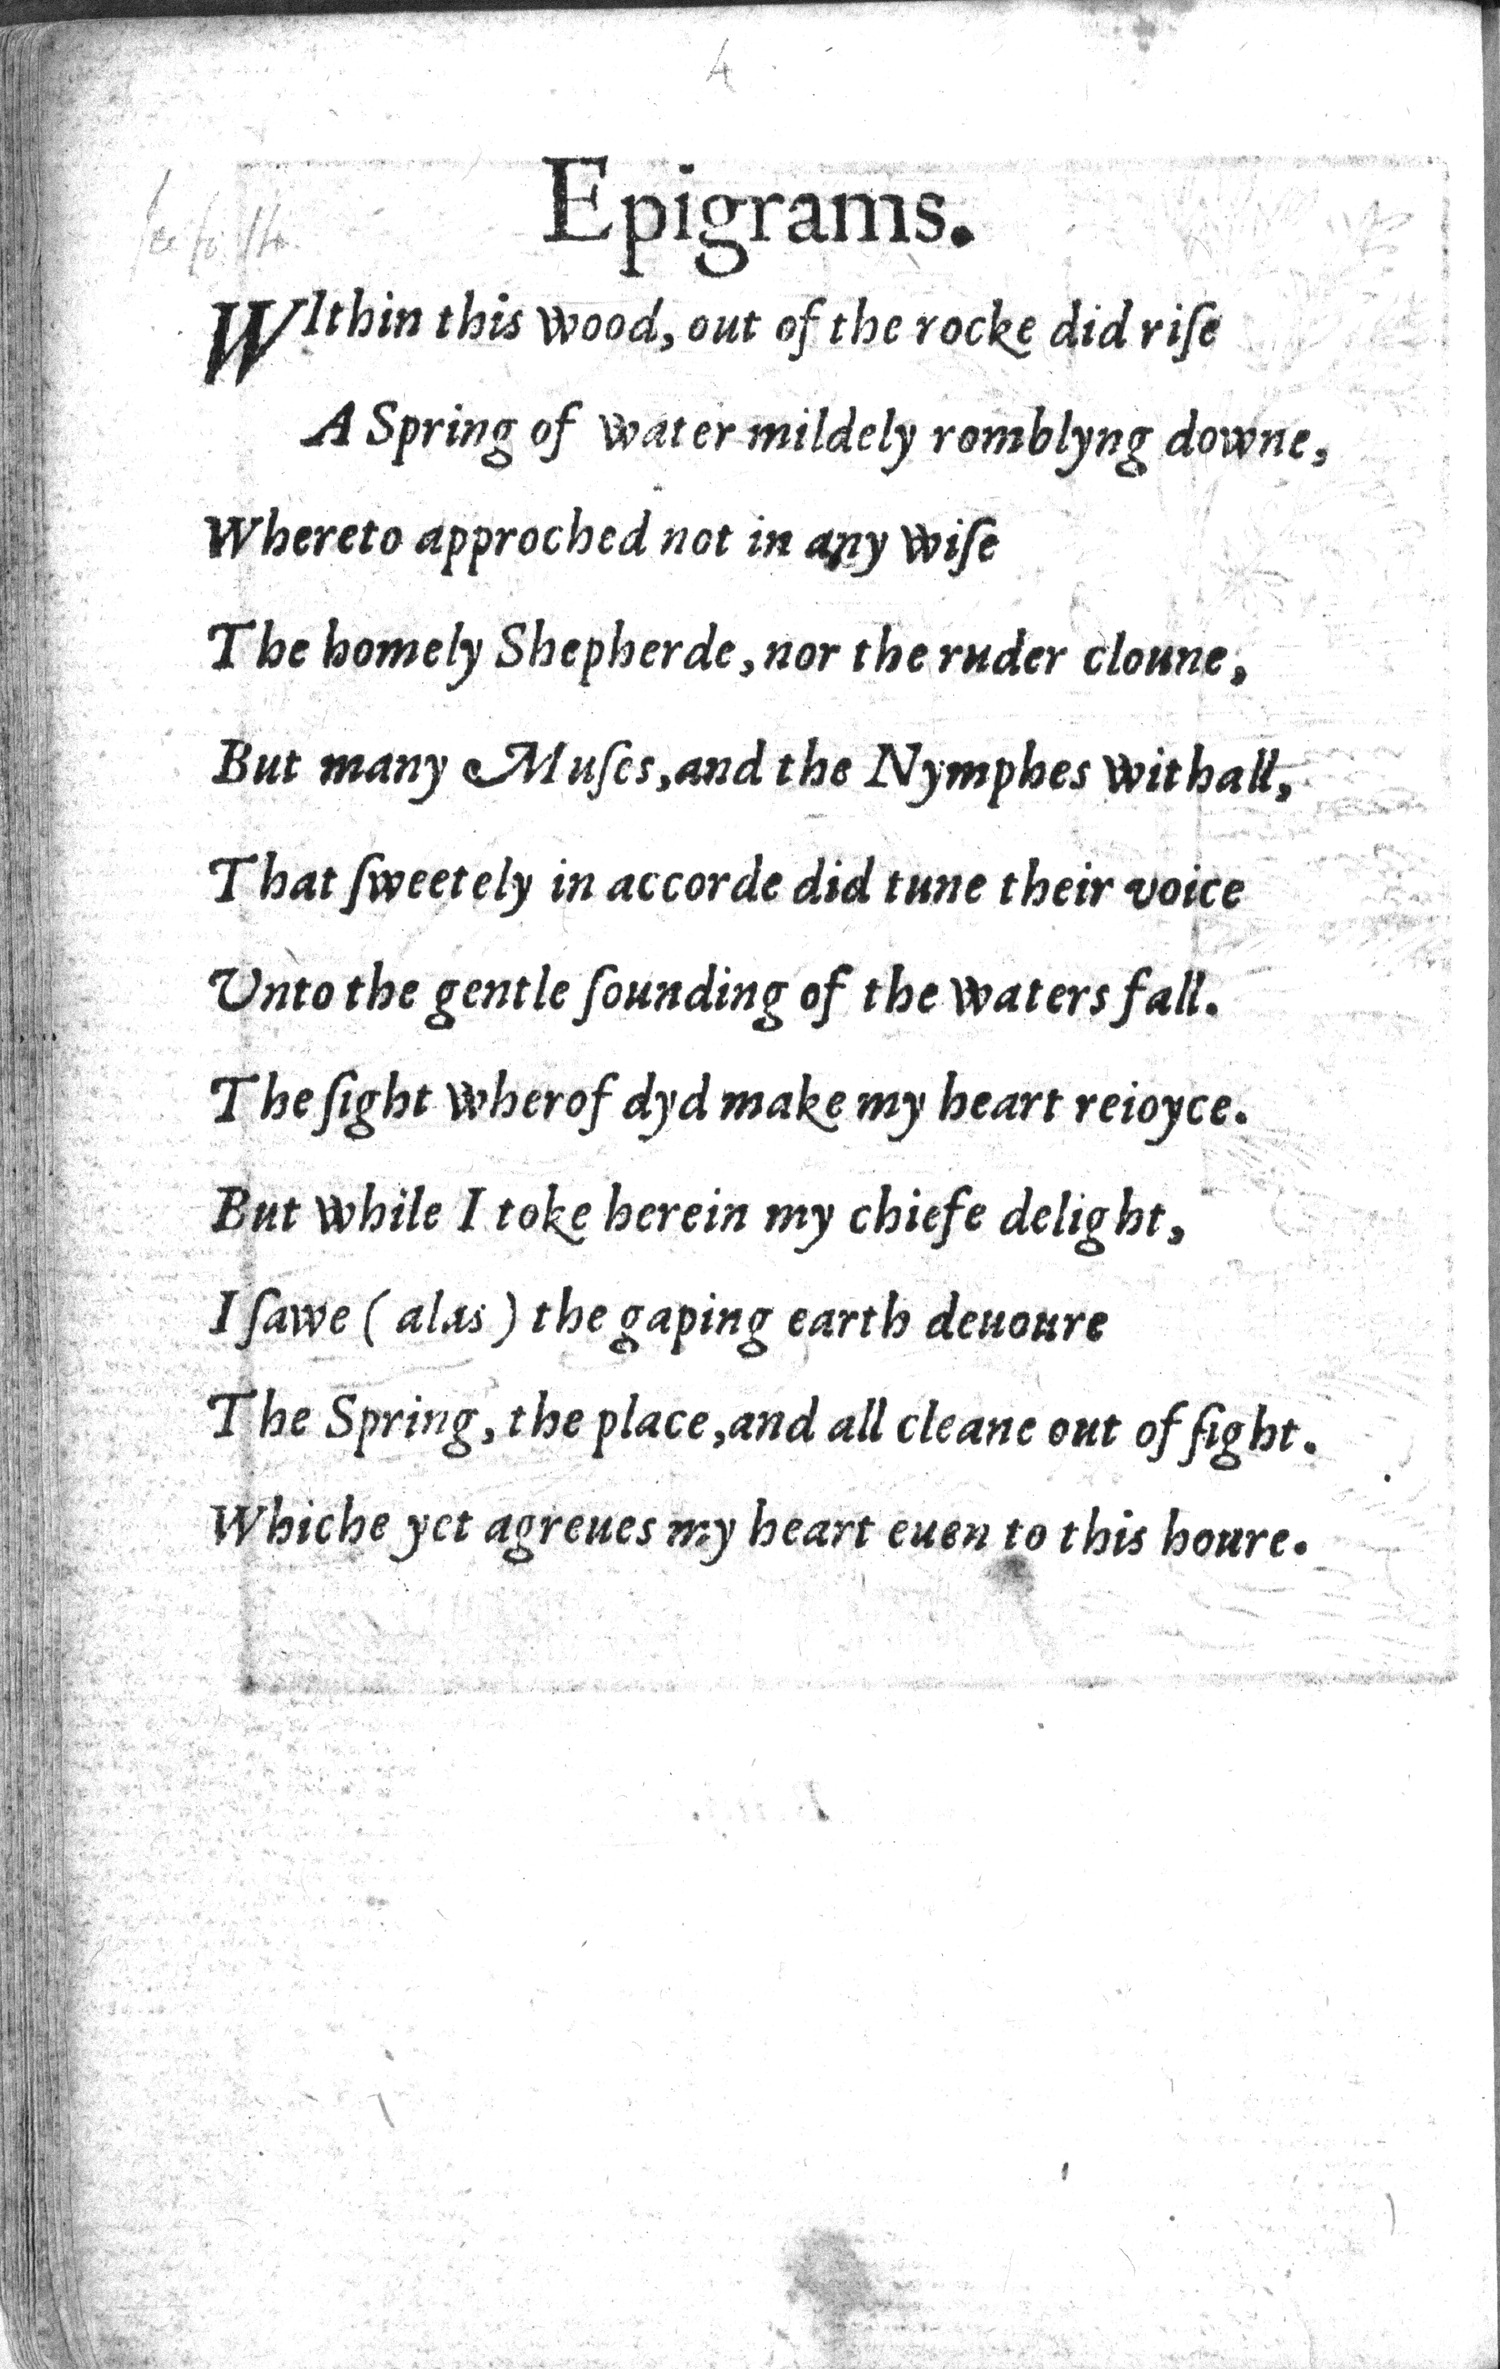 4
Epigrams.
WIthin this wood, out of the rocke did riſe
A Spring of water mildely romblyng downe,
Whereto approched not in any wiſe
The homely Shepherde, nor the ruder cloune,
But many Muſes, and the Nymphes withall,
That ſweetely in accorde did tune their voice
Unto the gentle ſounding of the waters fall.
The ſight wherof dyd make my heart reioyce.
But while I toke herein my chiefe delight,
I ſawe (alas) the gaping earth deuoure
The Spring, the place, and all cleane out of ſight.
Whiche yet agreues my heart euen to this houre.